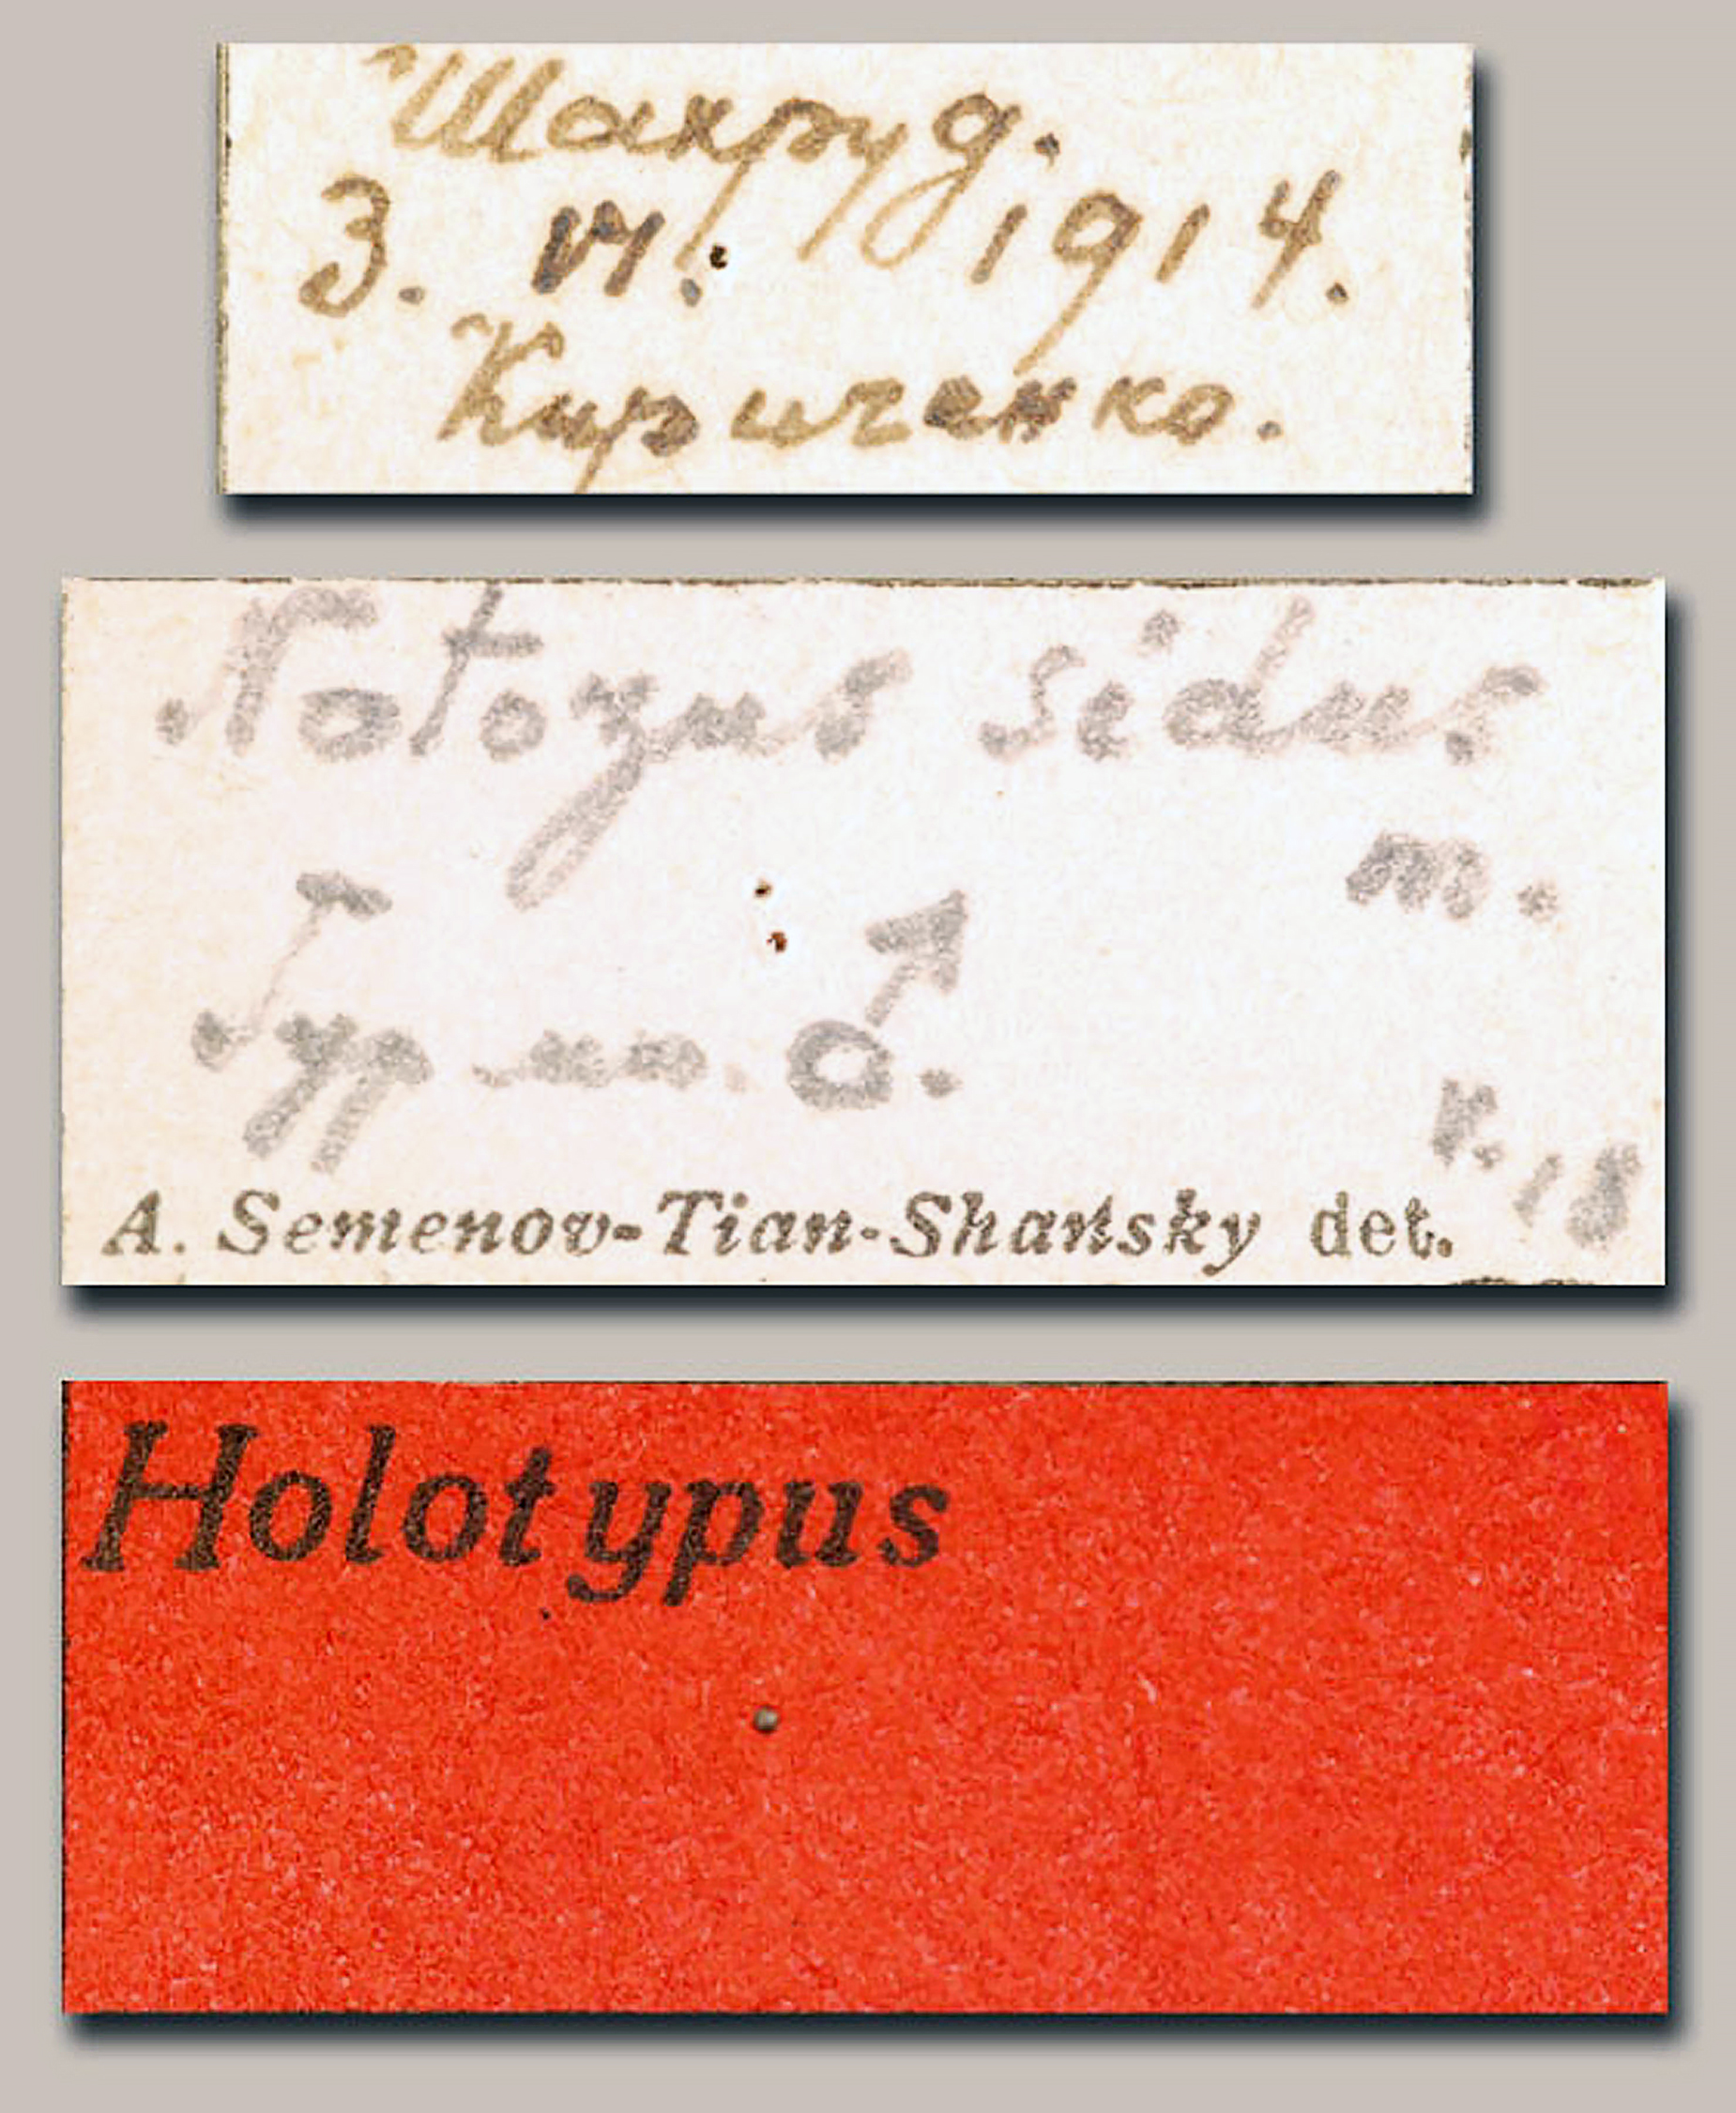 Шахруд.
3. VI. 1914.
Кириченко.
Notozus sidus
m.
Typ. un. ♂.
V.18
A. Semenov-Tian-Shansky det.
Holotypus